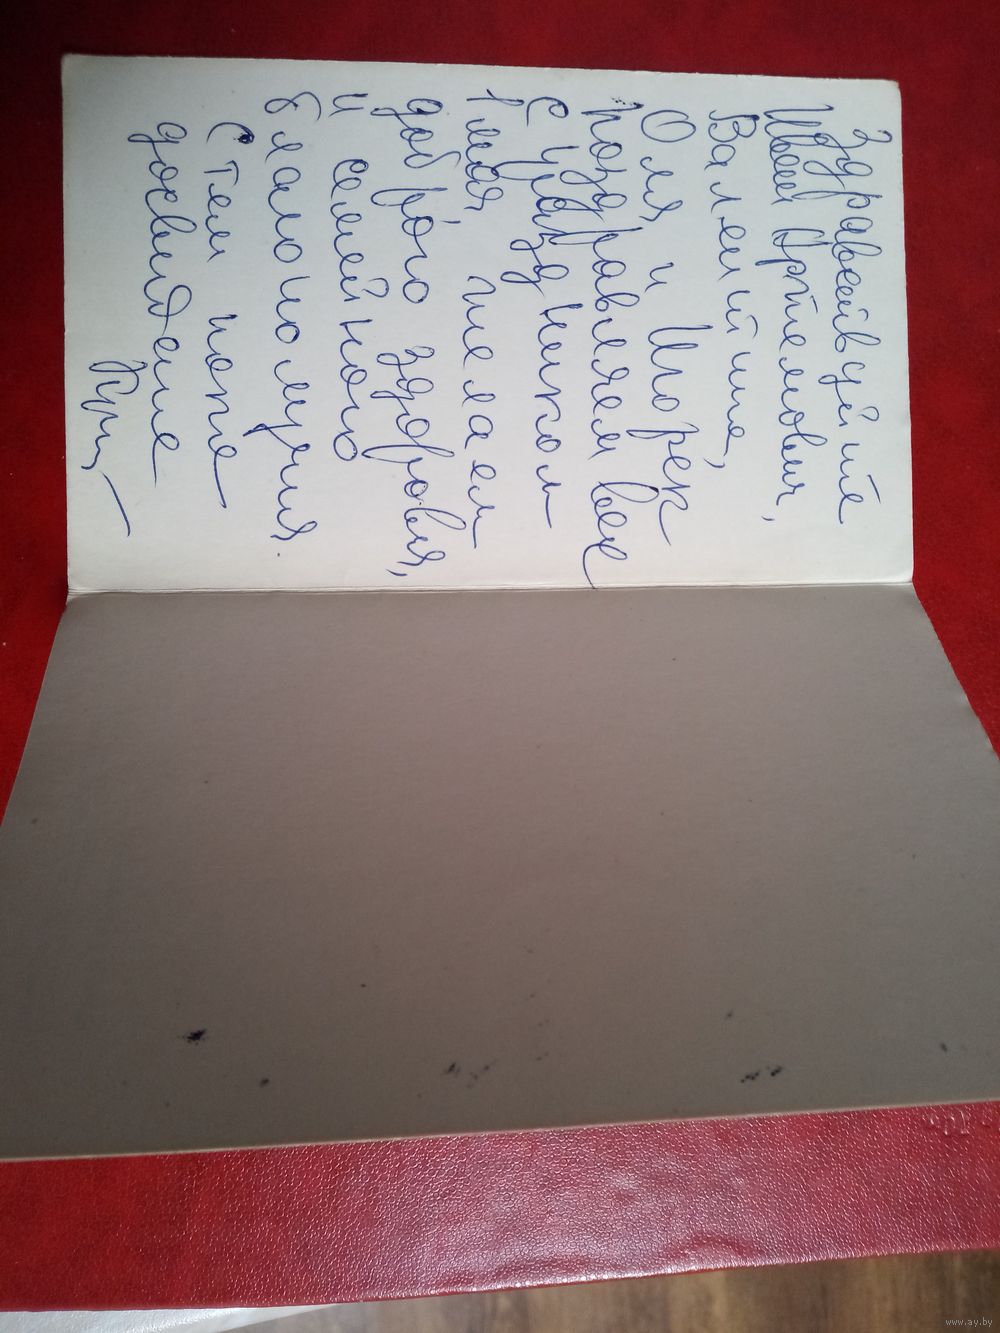 Здравствуйте
Иван Артемович,
Валентине,
Оля и Игорек
поздравляем всех
с праздником
1 мая, желаем
доброго здоровья,
и семейного
благополучия.
С тем пока
досвидание
www.ay.by